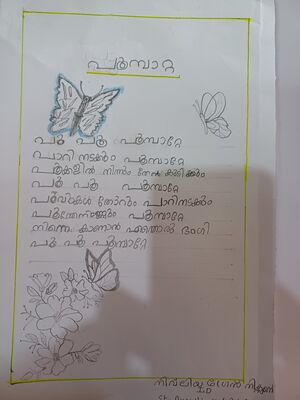 പൂമ്പാറ്റ
പൂ പൂ പൂമ്പാറ്റേ
പാറി നടക്കും പൂമ്പാറ്റേ
പൂക്കളിൽ നിന്നും തേൻ കുടിക്കും
പൂ പൂ പൂമ്പാറ്റേ
പൂവുകൾ തോറും പാറിനടക്കും
പൂന്തേനുണ്ണും പൂമ്പാറ്റേ
നിന്നെ കാണാൻ എന്തൊരു ഭംഗി
പൂ പൂ പൂമ്പാറ്റേ